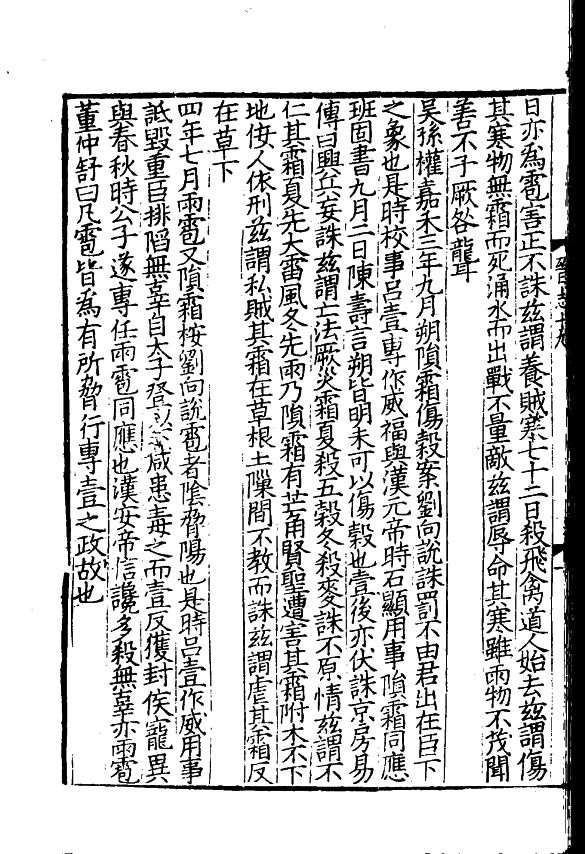 日亦爲雹害正不誅兹謂養賊寒七十二日殺飛禽道人始去兹謂傷
其寒物無霜而死涌水而出戰不量敵兹謂辱命其寒雖雨物不茂聞
善不予厥咎聾
吴孫權嘉禾三年九月朔隕霜傷穀案劉向說誅罰不由君出在臣下
之象也是時校事吕壹專作威福與漢元帝時石顯用事隕霜同應
班固書九月二日陳壽言朔皆明未可以傷穀也壹後亦伏誅京房易
傳曰興兵妄誅兹謂亡法厥災霜夏殺五穀冬殺麥誅不原情兹謂不
仁其霜夏先大雷風冬先雨乃隕霜有芒角賢聖遭害其霜附木不下
地佞人依刑兹謂私賊其霜在草根土隟間不教而誅兹謂虐其霜反
在草下
四年七月雨雹又隕霜桉劉向說雹者陰脅陽也是時吕壹作威用事
詆毁重臣排陷無辜自太子登以下咸患毒之而壹反獲封侯寵異
與春秋時公子遂專任雨雹同應也漢安帝信讒多殺無辜亦雨雹
董仲舒曰凡雹皆爲有所脅行專壹之政故也